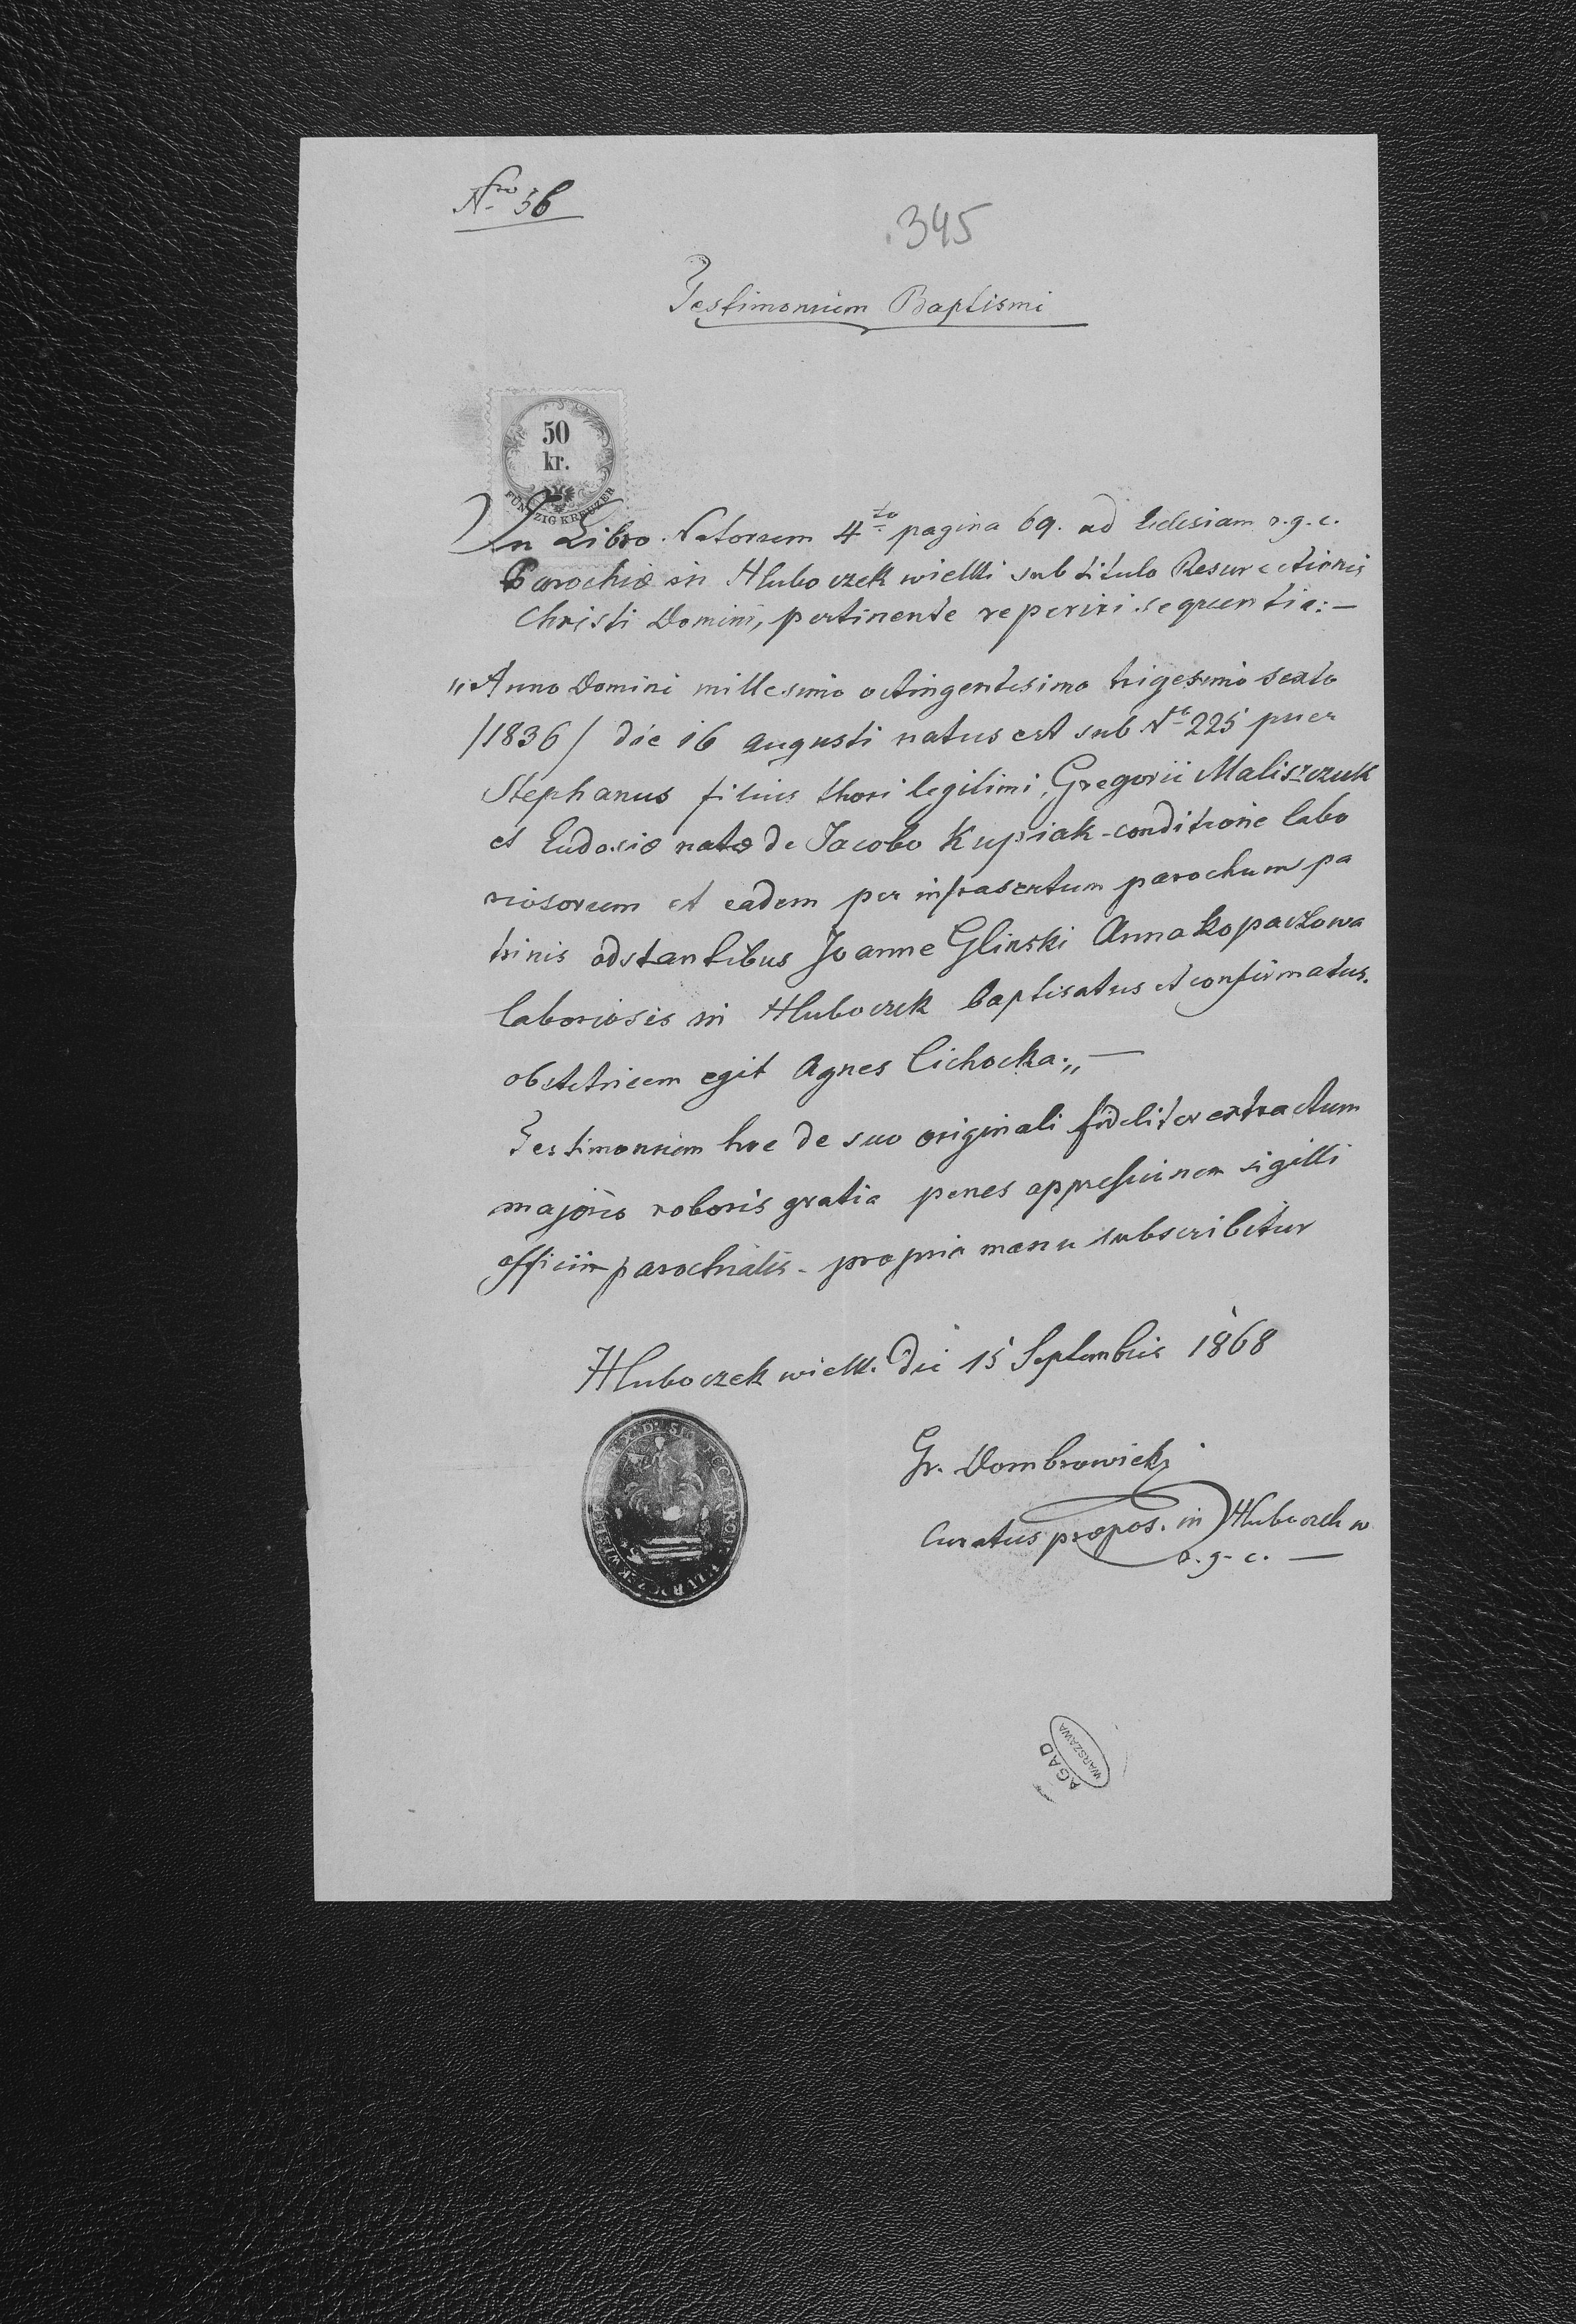 Nro 36
345
Testimonium Baptismi
50
kr.
FÜNFZIG KREUZER
In Libro Natorum 4to pagina 69. ad Eclesiam r. g. c.
Parochiæ in Hluboczek wielki sub titulo Resurectionis
Christi Domini, pertinente reperiri sequentia: —
"Anno Domini millesimo octingentesimo trigesimo sexto
/1836/ die 16 augusti natus est sub No 225 puer
Stephanus filius thori legitimi, Gregorii Maliszczuk
et Eudoxiæ natæ de Jacobo Kupiak - conditione labo
riosorum et eadem per infrascrtum parochum pa
trinis adstantibus Joanne Glinski Anna Kopaczowa
laboriosis in Hluboczek baptisatus et confirmatus.
obstetricem egit Agnes Cichocka." —
Testimonium hoc de suo originali fideliter extractum
majoris roboris gratia penes appressionem sigilli
officii parochialis - propria manu subscribitur
Hluboczek wielk. die 15 Septembris 1868
Gr. Dombrowicki
Curatus præpos. in Hluboczek w
r. g. c. —
AGAD
WARSZAWA